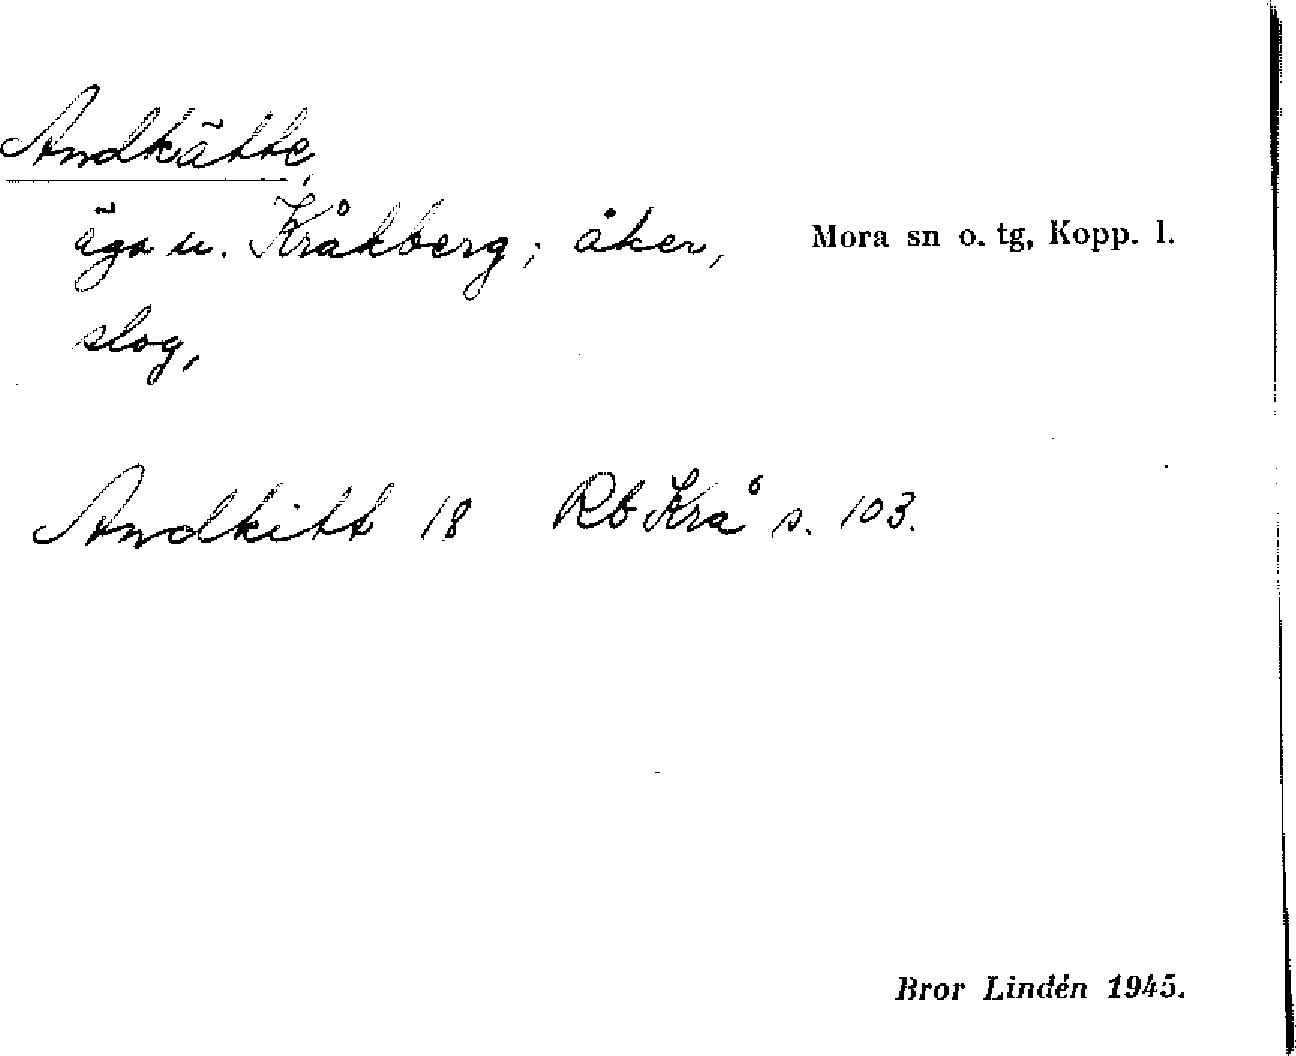 Andkätte,
äga u. Kråkberg; åker,
Mora sn o. tg, Kopp. l.
slog,
Andkitt 18 Rb Krå s. 103.
Bror Lindén 1945.